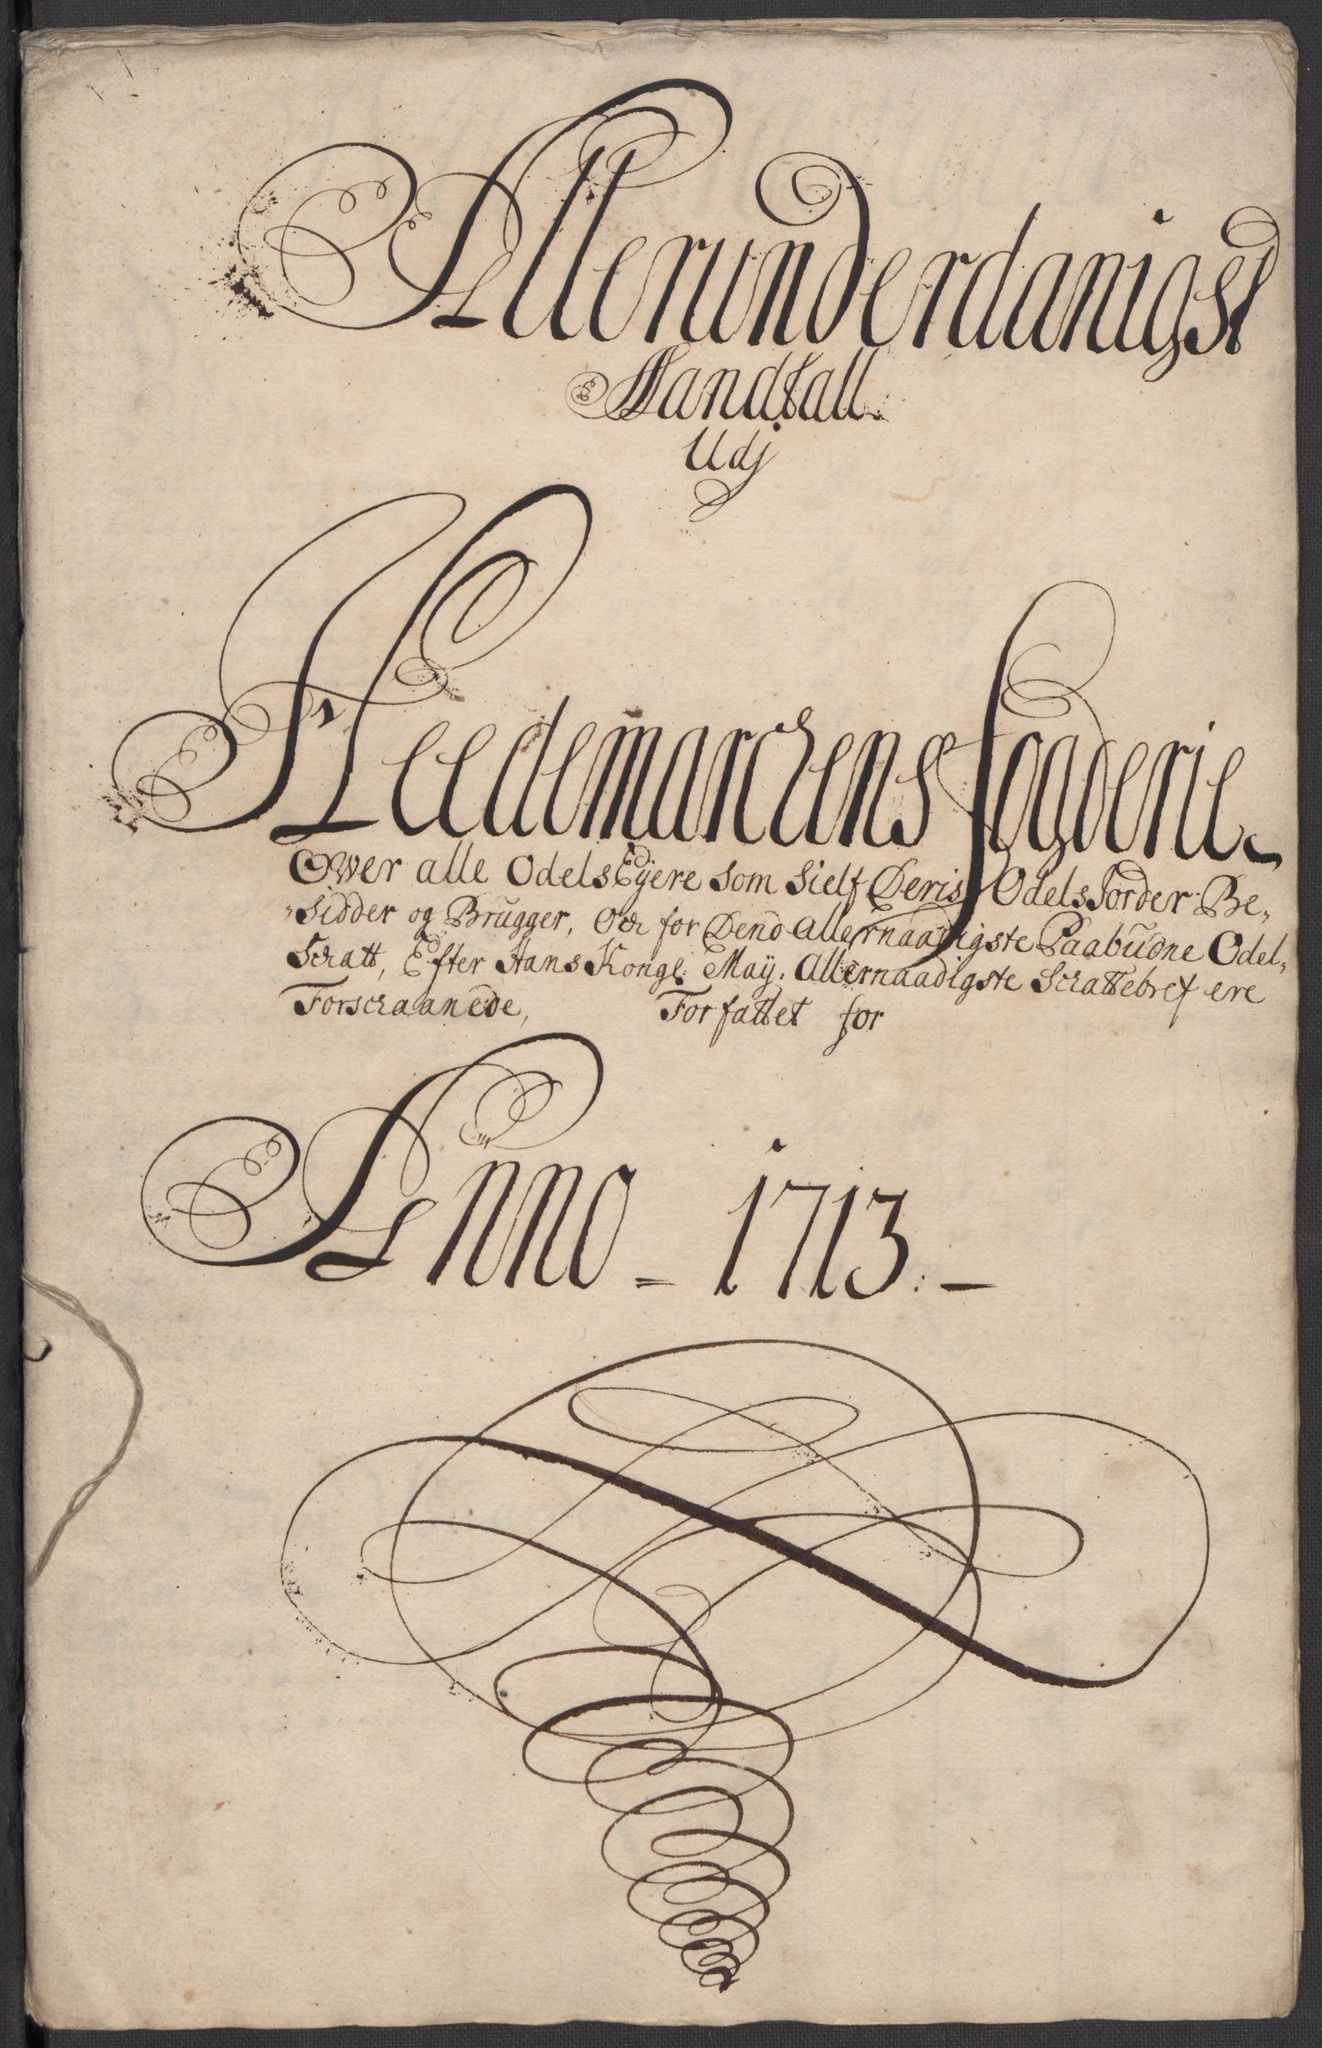 Allerunderdanigst
Mandtall
Udj
Heedemarchens fogderie
Over alle Odels Ejere som sielf Deris Odels Jorder Be,
sidder og Brugger, och for Dend allernaadigste Paabudne Odel,
skatt, Efter Hans Kongl: May: allernaadigste Skattebref ere
Forskaanede, Forfattet for
Anno = 1713:-